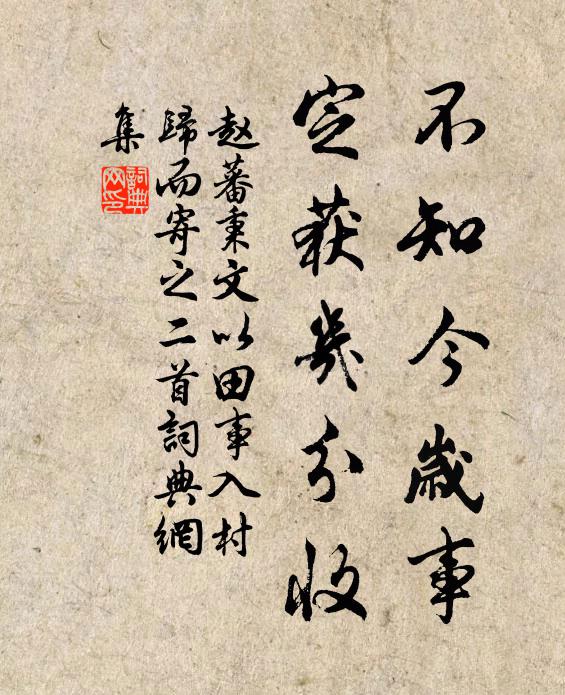 不知今歲事
定获幾分收
赵蕃秉文以田事入村
歸而寄之二首詞典網
集
詞典
网印